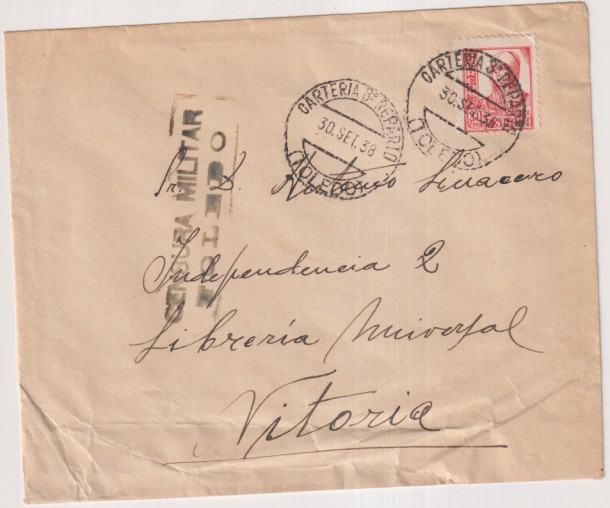 CARTERIA 3º REPARTO
30.SET.38
(TOLEDO)
CARTERIA 3º REPARTO
30.SET.38
(TOLEDO)
CENSURA MILITAR
TOLEDO
Sr. D. Antonio
Independencia 2
Librería Universal
Vitoria